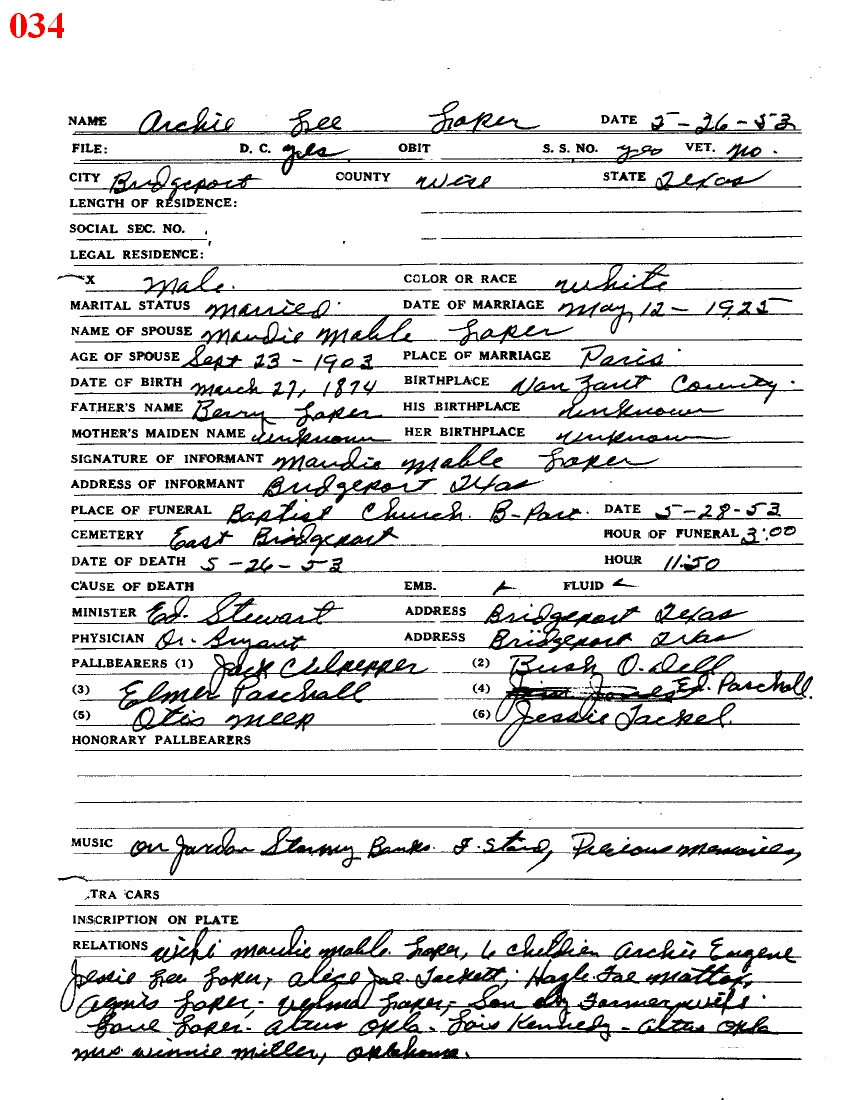 034
NAME Archie Lee Loper DATE 5-26-53
FILE: D. C. yes OBIT S. S. NO. yes VET. no.
CITY Bridgeport COUNTY Wise STATE Texas
LENGTH OF RESIDENCE:
SOCIAL SEC. NO.
LEGAL RESIDENCE:
X Male. COLOR OR RACE White
MARITAL STATUS married. DATE OF MARRIAGE May, 12-1925
NAME OF SPOUSE Maudie Mable Loper
AGE OF SPOUSE Sept 23-1903 PLACE OF MARRIAGE Paris.
DATE OF BIRTH March 27, 1874 BIRTHPLACE Van Zant County.
FATHER'S NAME Berry Loper HIS BIRTHPLACE Unknown
MOTHER'S MAIDEN NAME Unknown HER BIRTHPLACE Unknown
SIGNATURE OF INFORMANT Maudie Mable Loper
ADDRESS OF INFORMANT Bridgeport Texas
PLACE OF FUNERAL Baptist Church. B-Port. DATE 5-28-53
CEMETERY East Bridgeport HOUR OF FUNERAL 3:00
DATE OF DEATH 5-26-53 HOUR 11:50
CAUSE OF DEATH EMB. FLUID
MINISTER Ed. Stewart ADDRESS Bridgeport Texas
PHYSICIAN Dr. Bryant ADDRESS Bridgeport Texas
PALLBEARERS (1) Jack Culpepper (2) Bush O.Dell
(3) Elmer Paschall (4) Ed. Paschall.
(5) Otis Meek (6) Jessie Tackel.
HONORARY PALLBEARERS
MUSIC On Jordan Stormy Banks. I. Stand, Precious Memories,
TRA CARS
INSCRIPTION ON PLATE
RELATIONS Wife Maudie Mable. Loper, 6 children Archie Eugene
Jessie Lee Loper, Alice Joe Tackett, Hazle Fae Mattox,
Agnis Loper,- Velma Loper,- Son by Former wife.
Loper. Altus Okla- Lois Kennedy- Altus Okla
Mrs. Winnie Miller, Oklahoma.